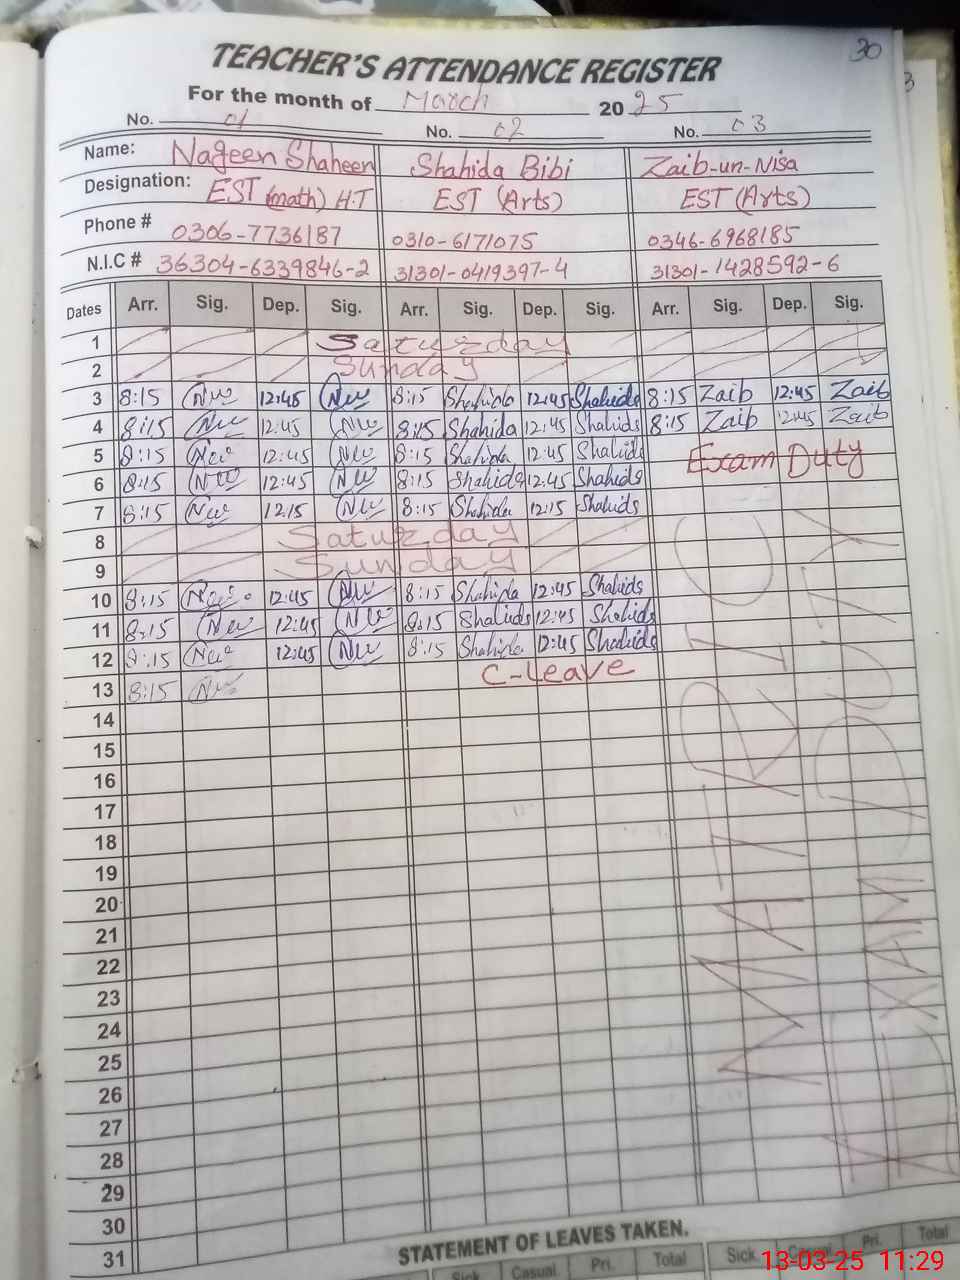 30
TEACHER'S ATTENDANCE REGISTER
For the month of March 2025
No. 01 No. 02 No. 03
Name: Nageen Shaheen Shahida Bibi Zaib-un-Nisa
Designation: EST (math) H.T EST (Arts) EST (Arts)
Phone # 0306-7736187 0310-6171075 0346-6968185
N.I.C # 36304-6339846-2 31301-0419397-4 31301-1428592-6
Dates Arr. Sig. Dep. Sig. Arr. Sig. Dep. Sig. Arr. Sig. Dep. Sig.
1 Saturday
2 Sunday
3 8:15 12:45 8:15 Shahida 12:45 Shahida 8:15 Zaib 12:45 Zaib
4 8:15 12:45 8:15 Shahida 12:45 Shahida 8:15 Zaib 12:45 Zaib
5 8:15 12:45 8:15 Shahida 12:45 Shahida Exam Duty
6 8:15 12:45 8:15 Shahida 12:45 Shahida
7 8:15 12:15 8:15 Shahida 12:15 Shahida
8 Saturday
9 Sunday
10 8:15 12:45 8:15 Shahida 12:45 Shahida
11 8:15 12:45 8:15 Shahida 12:45 Shahida
12 8:15 12:45 8:15 Shahida 12:45 Shahida
13 8:15 C-Leave
14
15
16
17
18
19
20
21
22
23
24
25
26
27
28
29
30
31
MATRIC
EXAM DUTY
STATEMENT OF LEAVES TAKEN.
Sick Casual Pri. Total Sick Casual Pri. Total
13-03-25 11:29